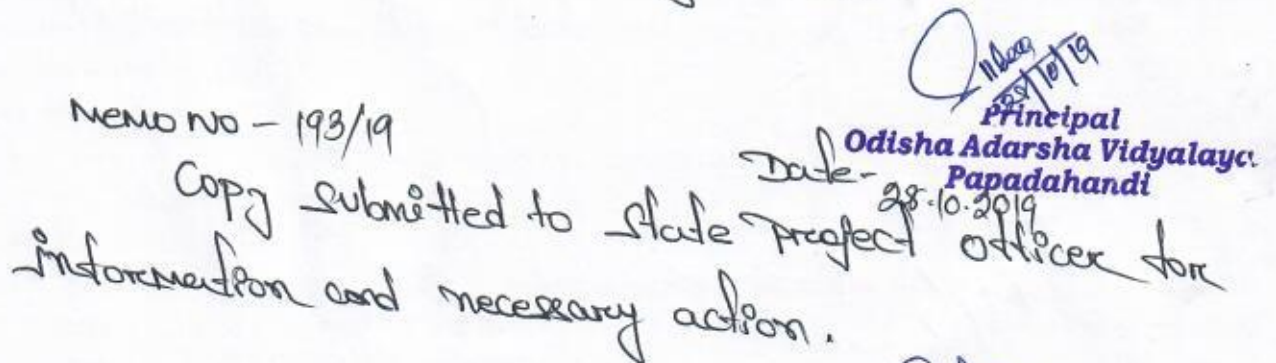 28/10/19
Principal
Odisha Adarsha Vidyalaya
Papadahandi
Memo No - 193/19
Date- 28.10.2019
Copy submitted to State Project Officer for
information and necessary action.